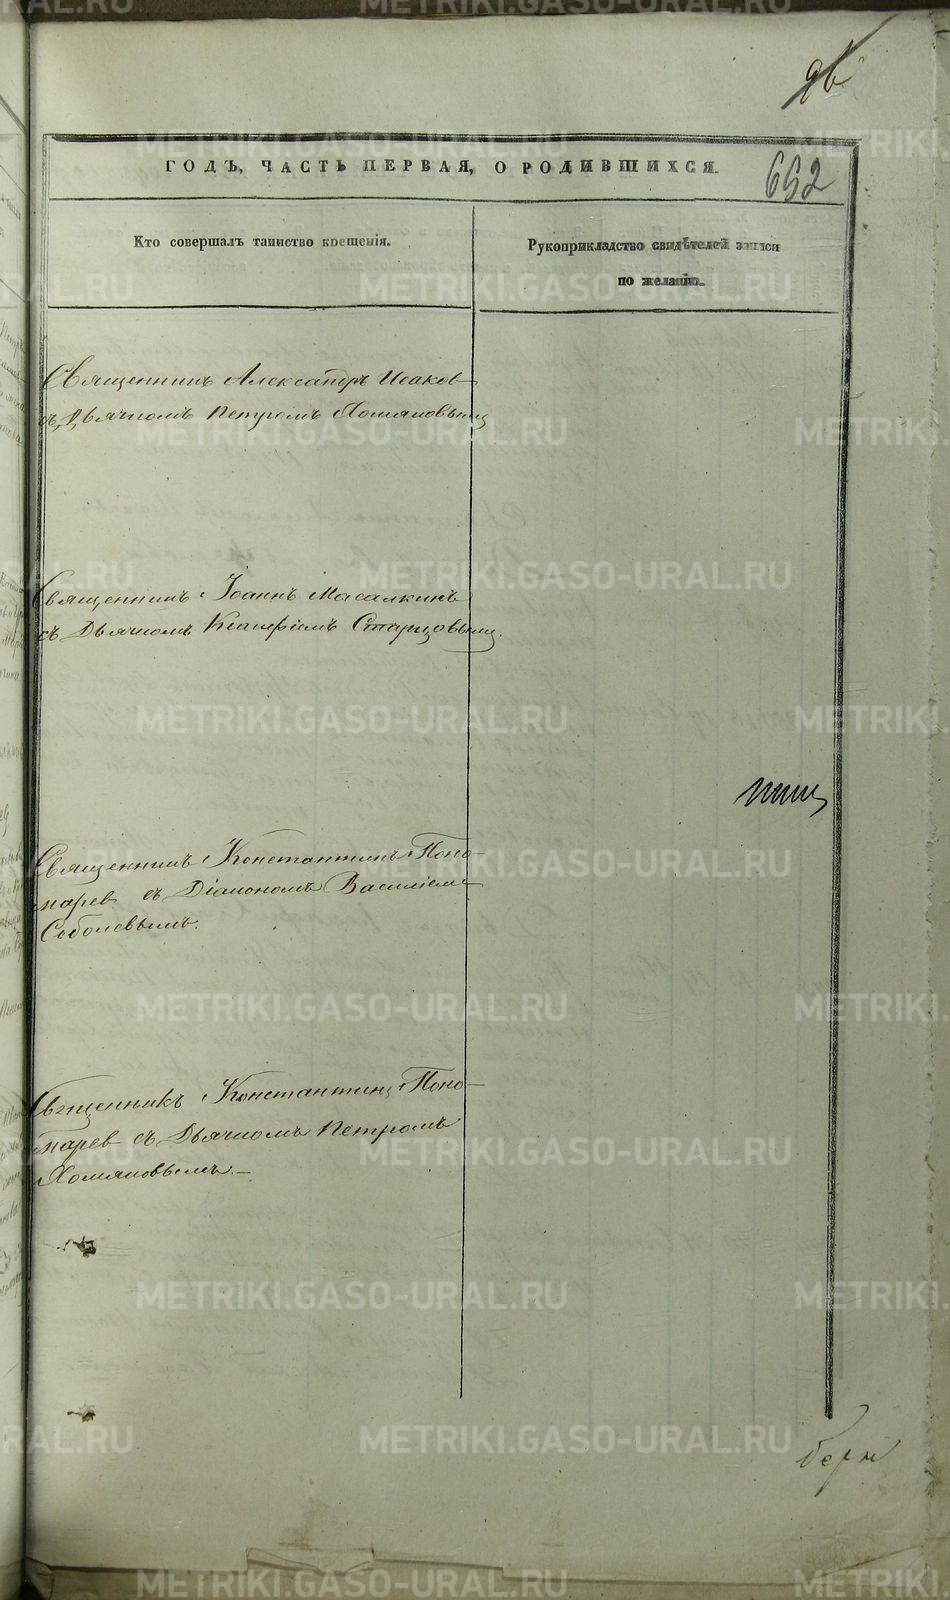 96
ГОДЪ, ЧАСТЬ ПЕРВАЯ, О РОДИВШИХСЯ.
652
Кто совершалъ таинство крещенія.
Рукоприкладство свидѣтелей записи
по желанію.
Священникъ Александръ Исаков
съ Дьячкомъ Петромъ Хомяковымъ
Священникъ Іоаннъ Масалкинъ
съ Дьячкомъ Старцовымъ.
Священникъ Константинъ Поно-
марев съ Діакономъ Василіемъ
Соболевымъ.
Священникъ Константинъ Поно-
марев съ Дьячкомъ Петромъ
Хомяковымъ.—
METRIKI.GASO-URAL.RU